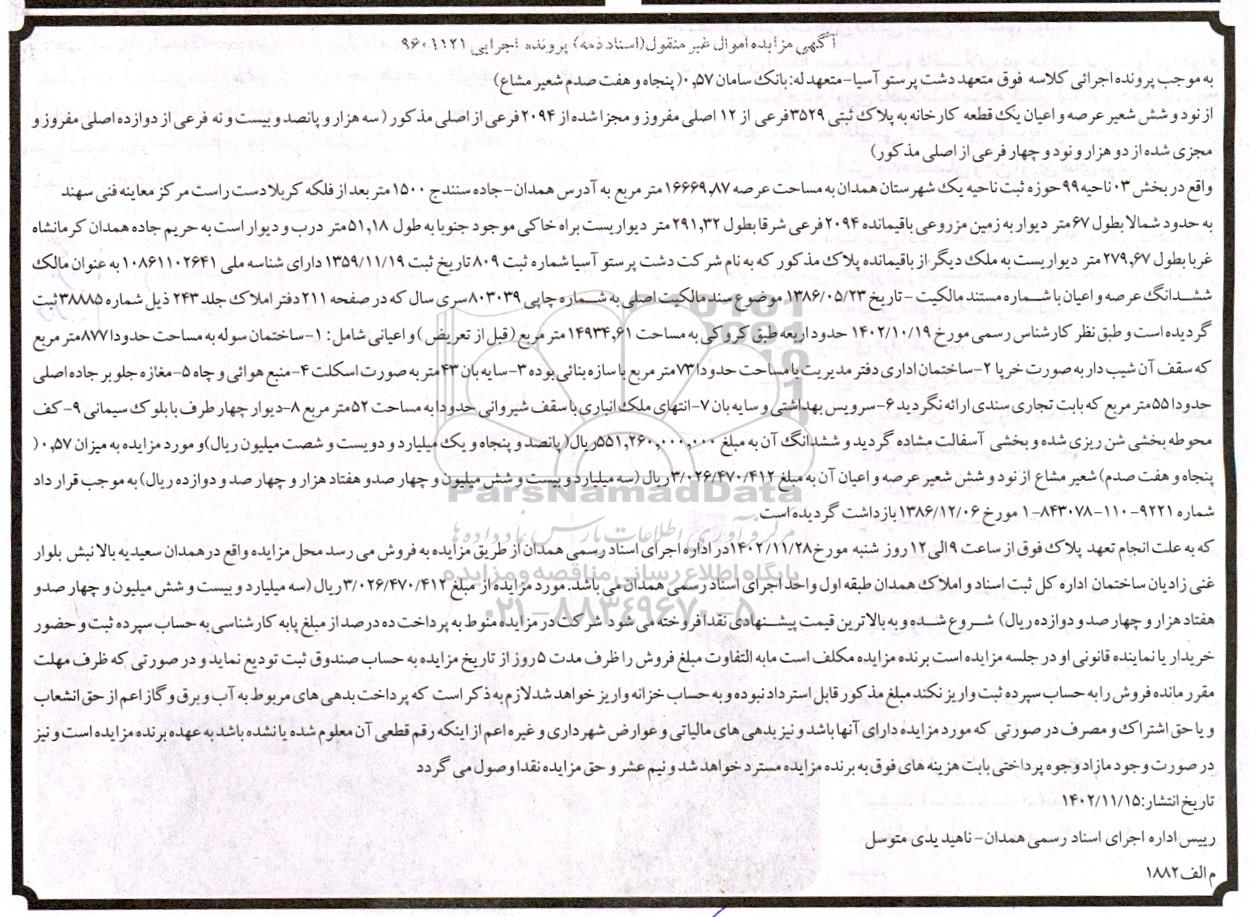 آگهی مزایده اموال غیر منقول(اسناد ذمه) پرونده اجرایی ۹۶۰۱۱۲۱
به موجب پرونده اجرائی کلاسه فوق متعهد دشت پرستو آسیا-متعهد له: بانک سامان ۰٫۵۷( پنجاه و هفت صدم شعیر مشاع)
از نود و شش شعیر عرصه و اعیان یک قطعه کارخانه به پلاک ثبتی ۳۵۲۹فرعی از ۱۲ اصلی مفروز و مجزا شده از ۲۰۹۴فرعی از اصلی مذکور ( سه هزار و پانصد و بیست و نه فرعی از دوازده اصلی مفروز و
مجزی شده از دو هزار و نود و چهار فرعی از اصلی مذکور)
واقع در بخش ۰۳ ناحیه ۹۹ حوزه ثبت ناحیه یک شهرستان همدان به مساحت عرصه ۱۶۶۶۹٫۸۷ متر مربع به آدرس همدان-جاده سنندج ۱۵۰۰ متر بعد از فلکه کربلا دست راست مرکز معاینه فنی سهند
به حدود شمالا بطول ۶۷متر دیوار به زمین مزروعی باقیمانده ۲۰۹۴ فرعی شرقا بطول ۲۹۱٫۳۲ متر دیواریست براه خاکی موجود جنوبا به طول ۵۱٫۱۸متر درب و دیوار است به حریم جاده همدان کرمانشاه
غربا بطول ۲۷۹٫۶۷ متر دیواریست به ملک دیگر از باقیمانده پلاک مذکور که به نام شرکت دشت پرستو آسیا شماره ثبت ۸۰۹ تاریخ ثبت ۱۳۵۹/۱۱/۱۹ دارای شناسه ملی ۱۰۸۶۱۱۰۲۶۴۱ به عنوان مالک
ششدانگ عرصه و اعیان با شماره مستند مالکیت - تاریخ ۱۳۸۶/۰۵/۲۳ موضوع سند مالکیت اصلی به شماره چاپی ۸۰۳۰۳۹سری سال که در صفحه ۲۱۱ دفتر املاک جلد ۲۴۳ ذیل شماره ۳۸۸۸۵ثبت
گردیده است و طبق نظر کارشناس رسمی مورخ ۱۴۰۲/۱۰/۱۹ حدود اربعه طبق کروکی به مساحت ۱۴۹۳۴٫۶۱ متر مربع (قبل از تعریض ) و اعیانی شامل: ۱-ساختمان سوله به مساحت حدودا ۸۷۷متر مربع
که سقف آن شیب دار به صورت خرپا ۲-ساختمان اداری دفتر مدیریت با مساحت حدودا ۷۳متر مربع با سازه بنائی بوده ۳-سایه بان ۴۳متر به صورت اسکلت ۴-منبع هوائی و چاه ۵-مغازه جلو بر جاده اصلی
حدودا ۵۵متر مربع که بابت تجاری سندی ارائه نگردید ۶-سرویس بهداشتی و سایه بان ۷-انتهای ملک انباری با سقف شیروانی حدودا به مساحت ۵۲متر مربع ۸-دیوار چهار طرف با بلوک سیمانی ۹-کف
محوطه بخشی شن ریزی شده و بخشی آسفالت مشاده گردید و ششدانگ آن به مبلغ ۵۵۱,۲۶۰,۰۰۰,۰۰۰ریال( پانصد و پنجاه و یک میلیارد و دویست و شصت میلیون ریال)و مورد مزایده به میزان ۰٫۵۷ (
پنجاه و هفت صدم) شعیر مشاع از نود و شش شعیر عرصه و اعیان آن به مبلغ ۳/۰۲۶/۴۷۰/۴۱۲ریال (سه میلیارد و بیست و شش میلیون و چهار صد و هفتاد هزار و چهار صد و دوازده ریال) به موجب قرار داد
شماره ۹۲۲۱-۱۱۰-۸۴۳۰۷۸-۱ مورخ ۱۳۸۶/۱۲/۰۶ بازداشت گردیده است.
که به علت انجام تعهد پلاک فوق از ساعت ۹ الی ۱۲ روز شنبه مورخ ۱۴۰۲/۱۱/۲۸در اداره اجرای اسناد رسمی همدان از طریق مزایده به فروش می رسد محل مزایده واقع در همدان سعیدیه بالا نبش بلوار
غنی زادیان ساختمان اداره کل ثبت اسناد و املاک همدان طبقه اول واحد اجرای اسناد رسمی همدان می باشد. مورد مزایده از مبلغ ۳/۰۲۶/۴۷۰/۴۱۲ریال (سه میلیارد و بیست و شش میلیون و چهار صد و
هفتاد هزار و چهار صد و دوازده ریال) شروع شده و به بالاترین قیمت پیشنهادی نقدا فروخته می شود شرکت در مزایده منوط به پرداخت ده درصد از مبلغ پایه کارشناسی به حساب سپرده ثبت و حضور
خریدار یا نماینده قانونی او در جلسه مزایده است برنده مزایده مکلف است مابه التفاوت مبلغ فروش را ظرف مدت ۵ روز از تاریخ مزایده به حساب صندوق ثبت تودیع نماید و در صورتی که ظرف مهلت
مقرر مانده فروش را به حساب سپرده ثبت واریز نکند مبلغ مذکور قابل استرداد نبوده و به حساب خزانه واریز خواهد شد لازم به ذکر است که پرداخت بدهی های مربوط به آب و برق و گاز اعم از حق انشعاب
و یا حق اشتراک و مصرف در صورتی که مورد مزایده دارای آنها باشد و نیز بدهی های مالیاتی و عوارض شهرداری و غیره اعم از اینکه رقم قطعی آن معلوم شده یا نشده باشد به عهده برنده مزایده است و نیز
در صورت وجود مازاد وجوه پرداختی بابت هزینه های فوق به برنده مزایده مسترد خواهد شد و نیم عشر و حق مزایده نقدا وصول می گردد
تاریخ انتشار:۱۴۰۲/۱۱/۱۵
رییس اداره اجرای اسناد رسمی همدان- ناهید یدی متوسل
م الف ۱۸۸۲
ParsNamadData
مرکز فرآوری اطلاعات پارس نماد داده ها
پایگاه اطلاع رسانی مناقصه و مزایده
۰۲۱-۸۸۳۴۹۶۷۰-۵